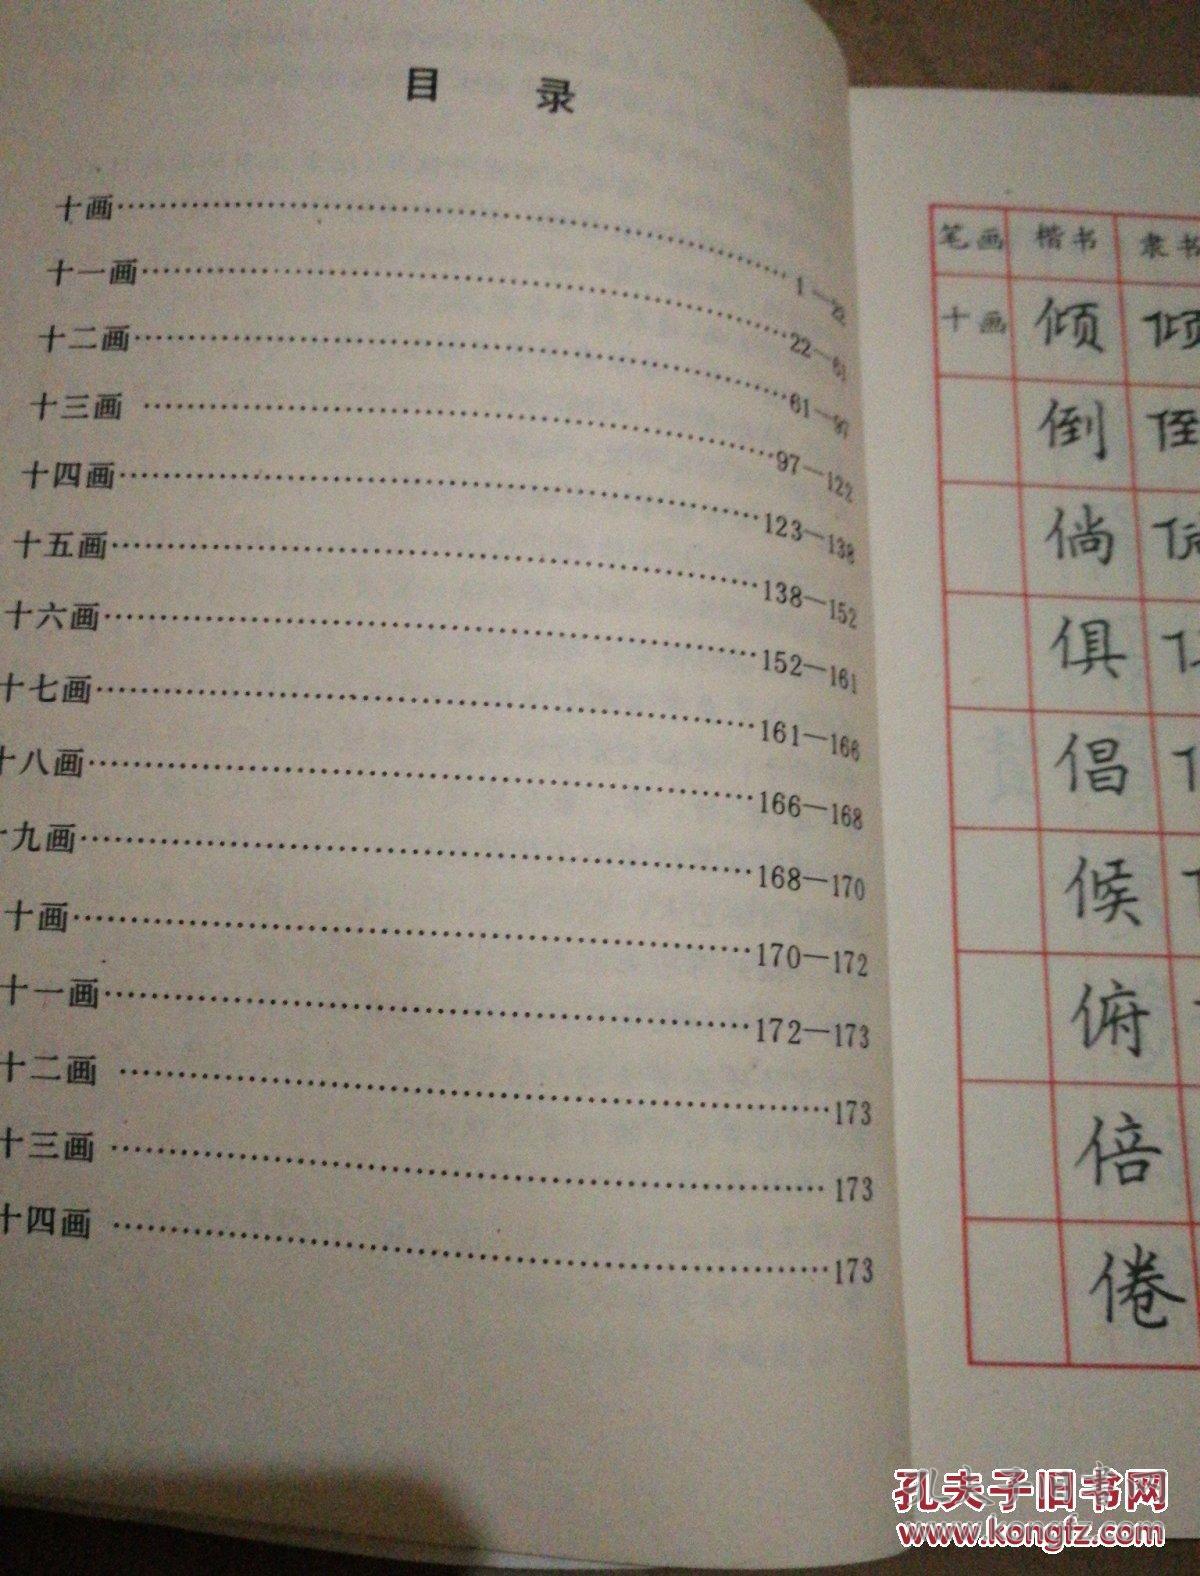 目 录
十画……1—22
十一画……22—61
十二画……61—97
十三画……97—122
十四画……123—138
十五画……138—152
十六画……152—161
十七画……161—166
十八画……166—168
十九画……168—170
十画……170—172
十一画……172—173
十二画……173
十三画……173
十四画……173
笔画 楷书 隶书
十画 倾 倾
倒 倒
倘
俱
倡
候
俯
倍
倦
孔夫子旧书网
www.kongfz.com